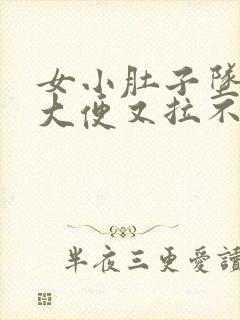 女小肚子墜
大便又拉不
半夜三更愛讀